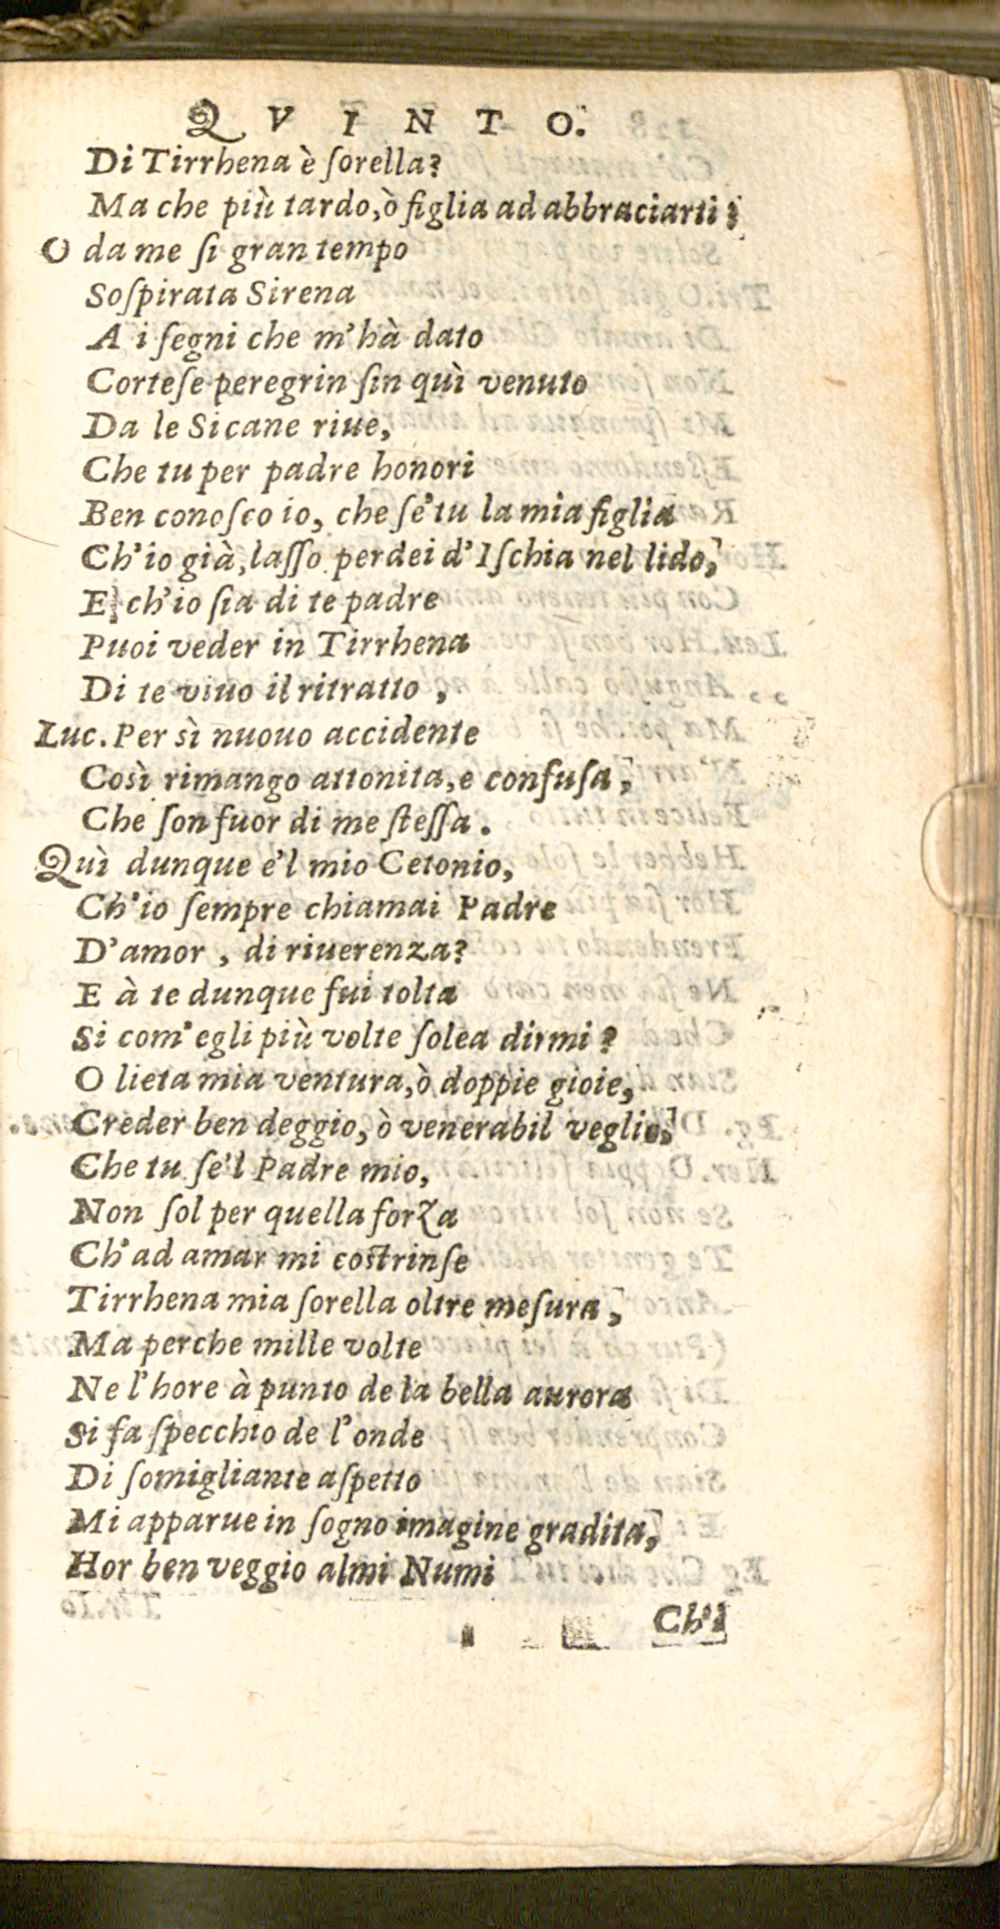 QVINTO.
Di Tirrhena è ſorella?
Ma che più tardo, ò figlia ad abbracciarti?
O da me ſi gran tempo
Soſpirata Sirena
A i ſegni che m'hà dato
Corteſe peregrin ſin quì venuto
Da le Sicane riue,
Che tu per padre honori
Ben conoſco io, che ſe'tu la mia figlia
Ch'io già, laſſo perdei d'Iſchia nel lido,
E ch'io ſia di te padre
Puoi veder in Tirrhena
Di te viuo il ritratto,
Luc. Per sì nuouo accidente
Così rimango attonita, e confuſa,
Che ſon fuor di me ſteſſa.
Quì dunque e'l mio Cetonio,
Ch'io ſempre chiamai Padre
D'amor, di riuerenza?
E à te dunque fui tolta
Si com'egli più volte ſolea dirmi?
O lieta mia ventura, ò doppie gioie,
Creder ben deggio, ò venerabil veglio,
Che tu ſe'l Padre mio,
Non ſol per quella forza
Ch'ad amar mi coſtrinſe
Tirrhena mia ſorella oltre meſura,
Ma perche mille volte
Ne l'hore à punto de la bella aurora
Si fa ſpecchio de l'onde
Di ſomigliante aſpetto
Mi apparue in ſogno imagine gradita,
Hor ben veggio almi Numi